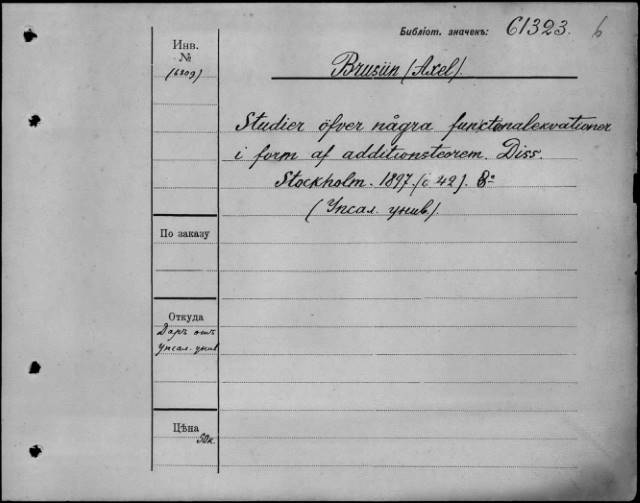 Библіот. значекъ: 61323. б
Инв.
№
(6209)
Brusün (Axel).
Studier öfver några functionalekvationer
i form af additionsteorem. Diss.
Stockholm. 1897. (с 42). 8º
(Упсал. унив.).
По заказу
Откуда
Даръ отъ
Упсал. унив
Цѣна
50к.